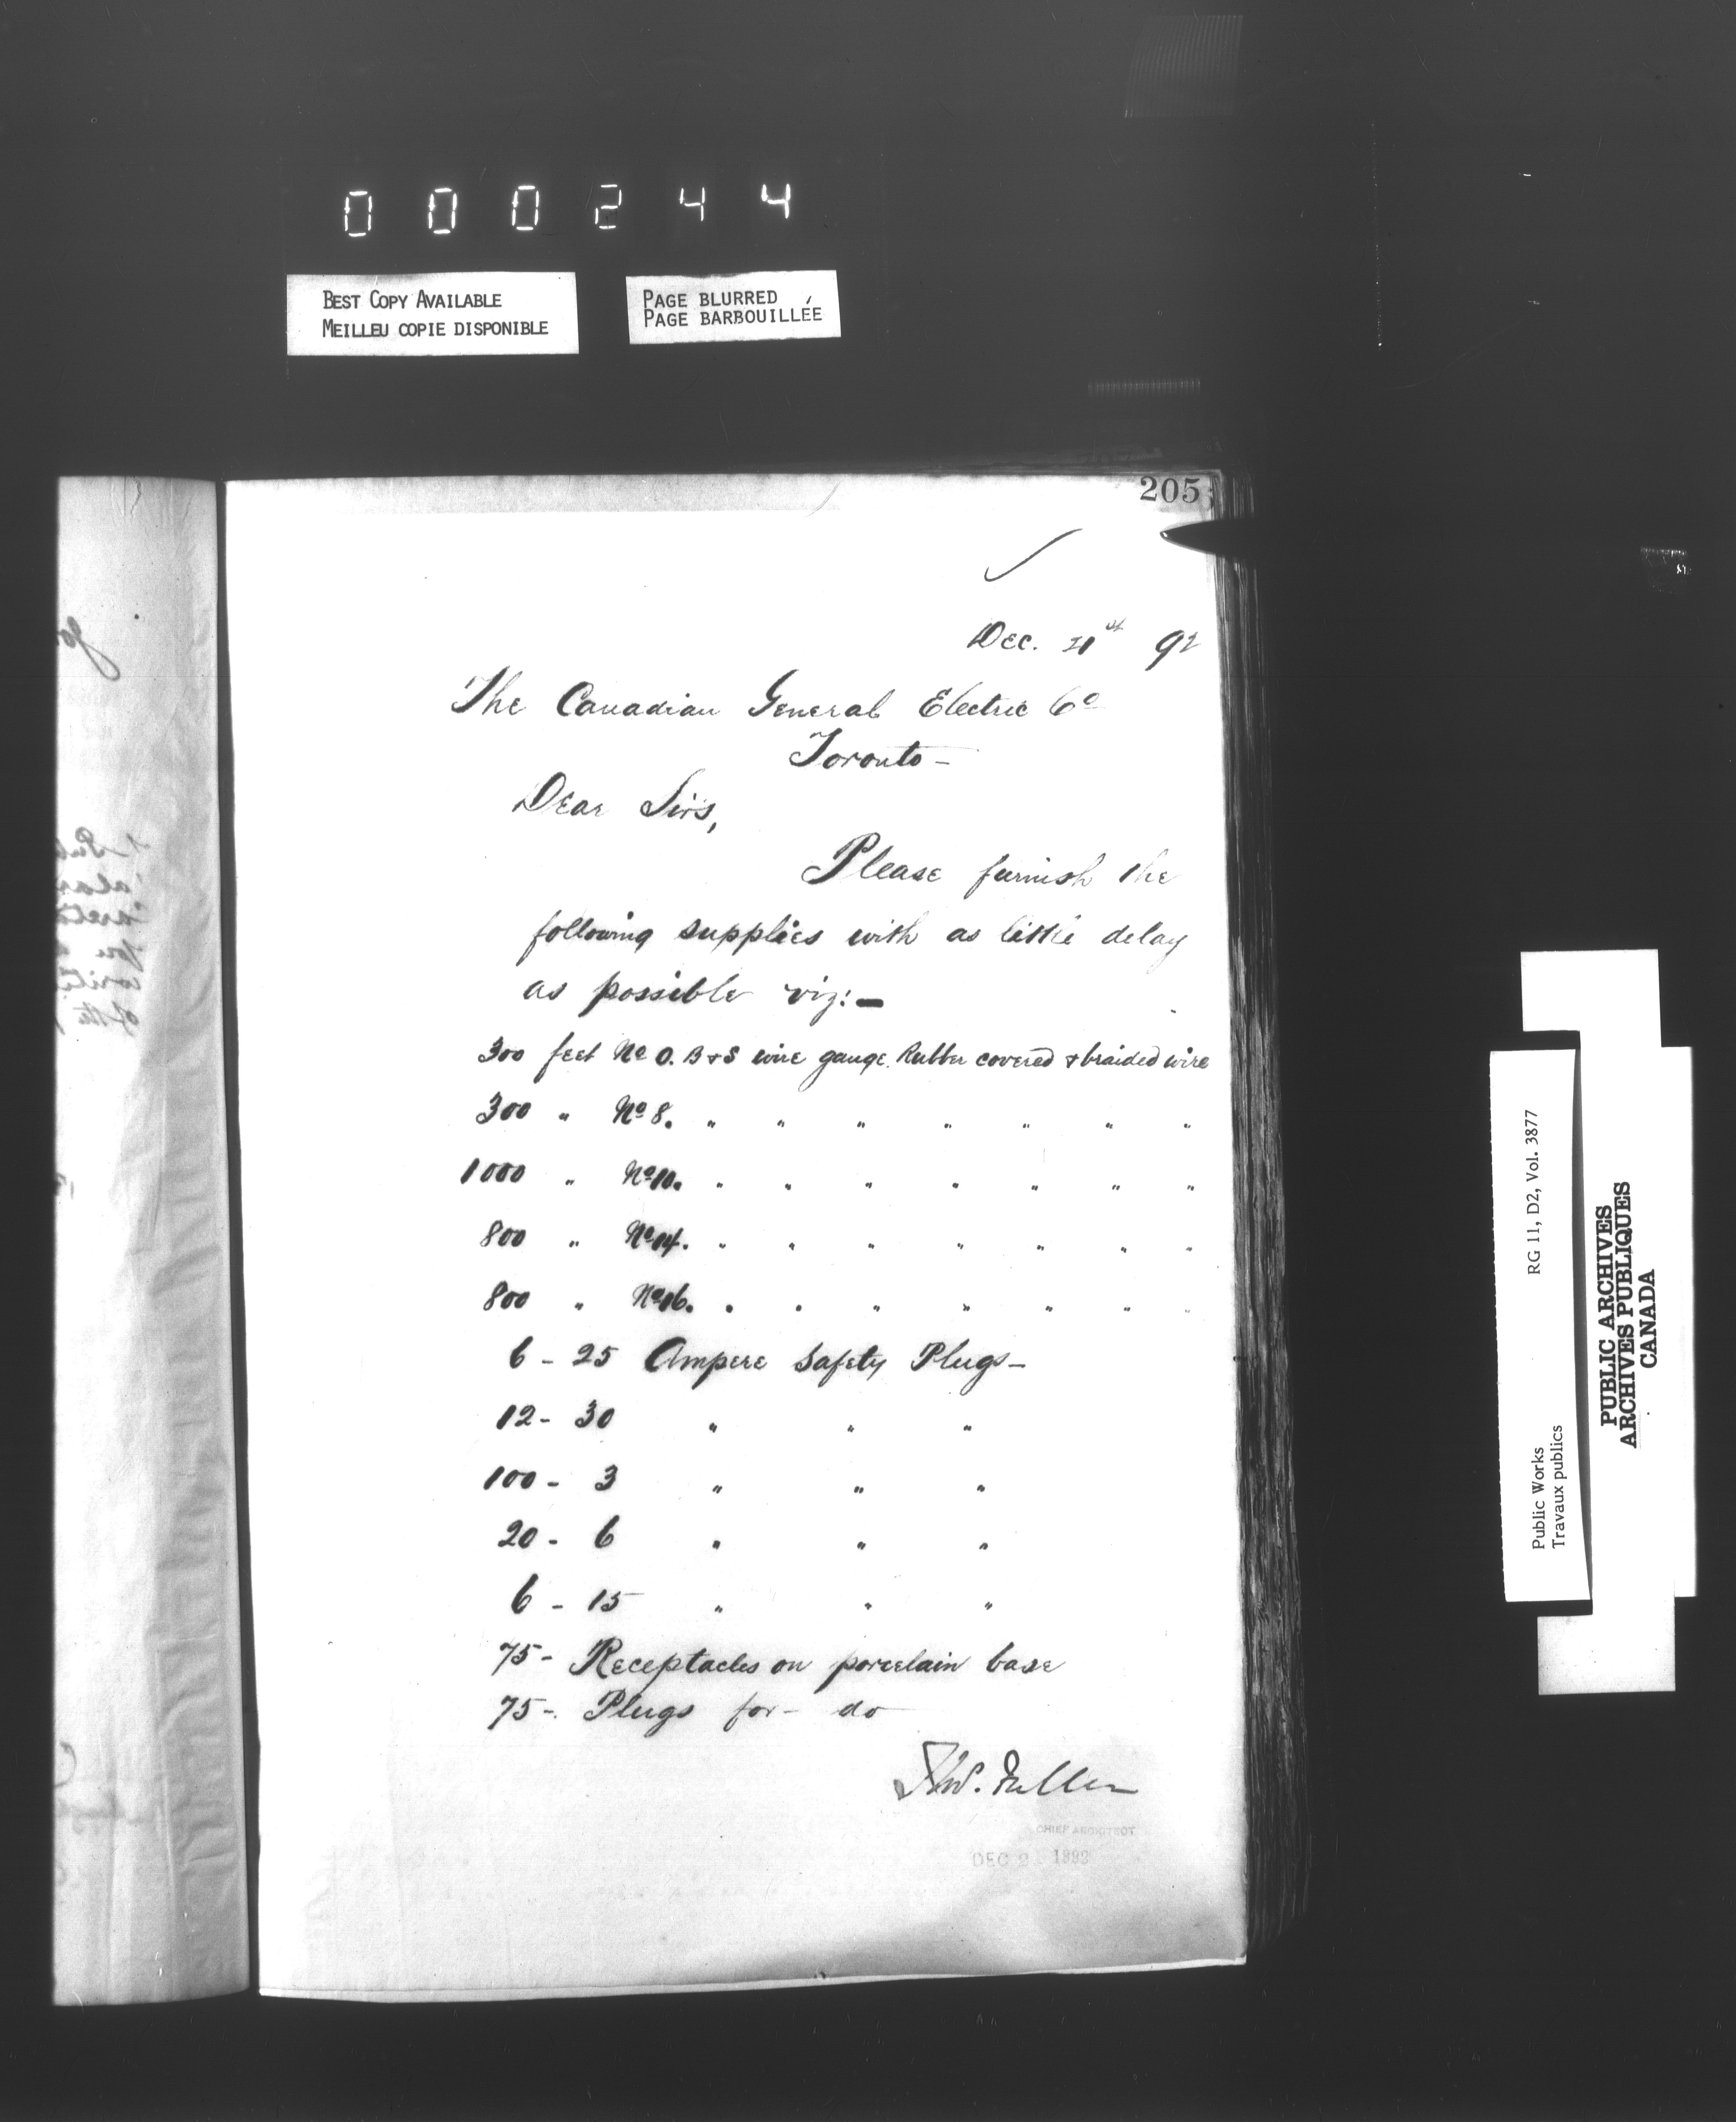 000244
BEST COPY AVAILABLE
MEILLEU COPIE DISPONIBLE
PAGE BLURRED
PAGE BARBOUILLÉE
205
Dec. 21st 92
The Canadian General Electric Co
Toronto –
Dear Sirs,
Please furnish the
following supplies with as little delay
as possible viz:–
300 feet No 0. B & S wire gauge. Rubber covered & braided wire
300 " No 8. " " " " " " "
1000 " No 10. " " " " " " "
800 " No 14. " " " " " " "
800 " No 16. " " " " " " "
6 – 25 Ampere Safety Plugs –
12 – 30 " " "
100 – 3 " " "
20 – 6 " " "
6 – 15 " " "
75 – Receptacles on porcelain base
75 –. Plugs for – do
Fuller
CHIEF ARCHITECT
DEC 2
RG 11, D2, Vol. 3877
Public Works
Travaux publics
PUBLIC ARCHIVES
ARCHIVES PUBLIQUES
CANADA